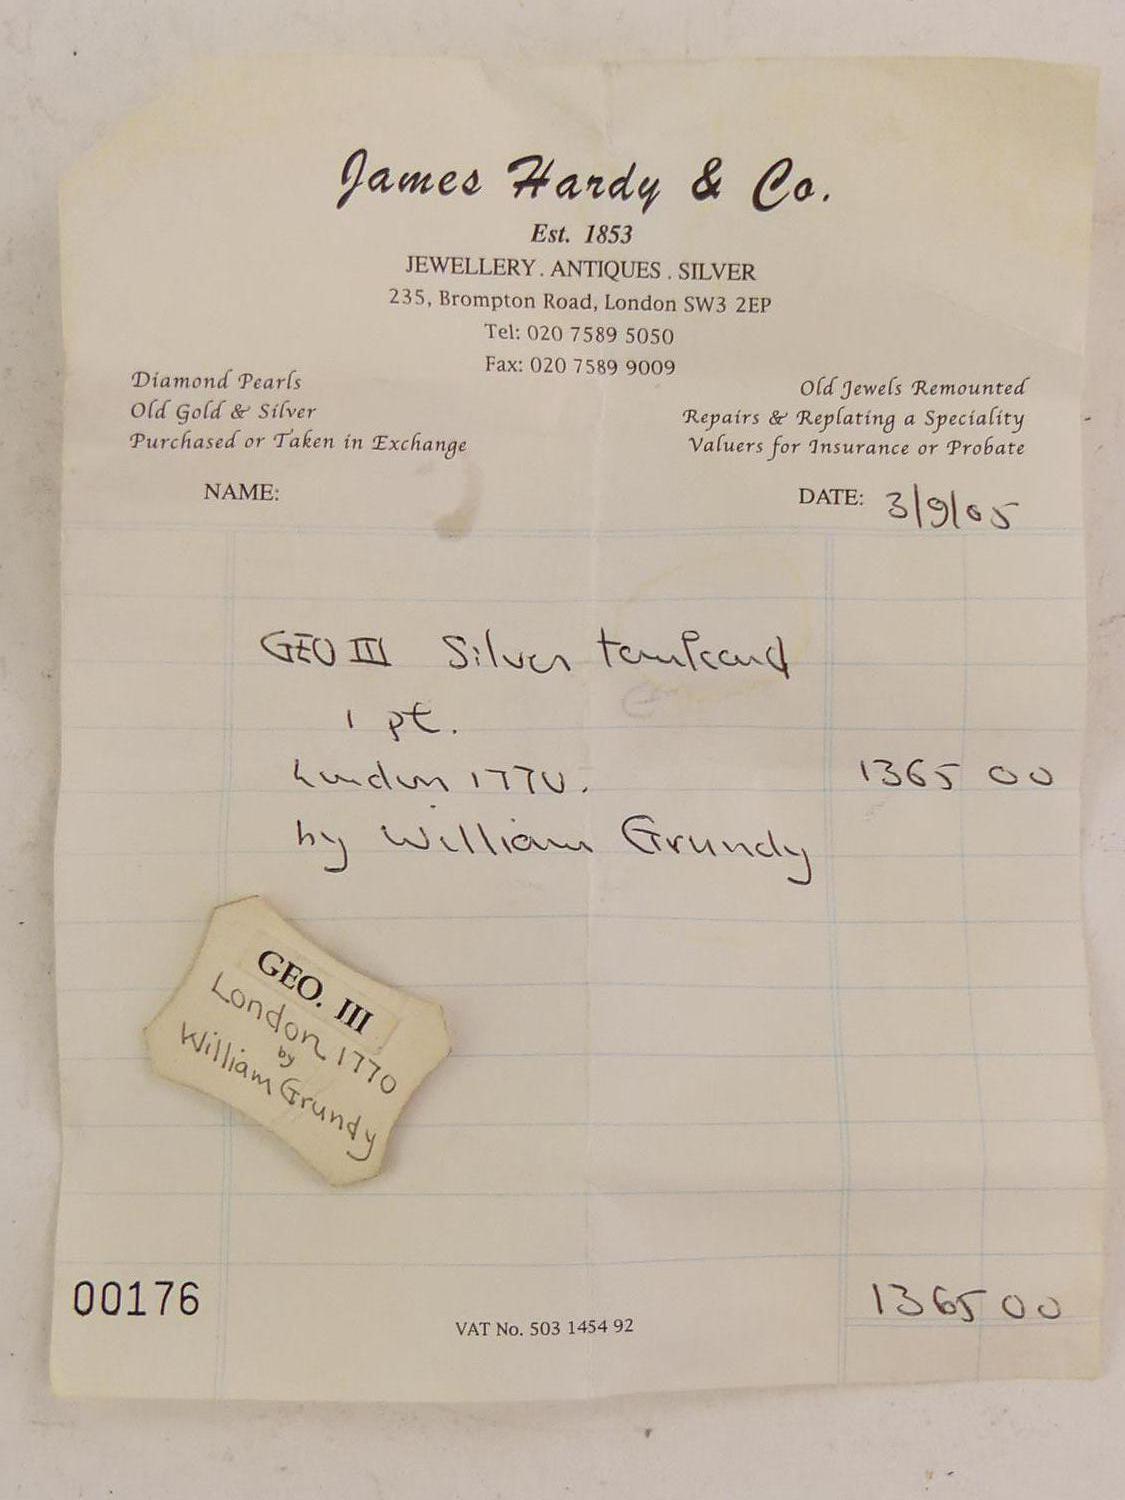 James Hardy & Co.
Est. 1853
JEWELLERY . ANTIQUES . SILVER
235, Brompton Road, London SW3 2EP
Tel: 020 7589 5050
Fax: 020 7589 9009
Diamond Pearls
Old Gold & Silver
Purchased or Taken in Exchange
Old Jewels Remounted
Repairs & Replating a Speciality
Valuers for Insurance or Probate
NAME:
DATE: 3/9/05
GEO III Silver tankard
1 pt.
London 1770. 1365 00
by William Grundy
GEO. III
London 1770
by
William Grundy
00176
VAT No. 503 1454 92
1365 00